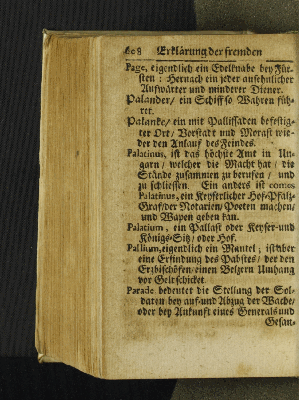 608 Erklärung der fremden
Page, eigentlich ein Edelknabe bey Für-
sten : Hernach ein jeder ansehnlicher
Aufwärter und minderer Diener.
Palander/ ein Schiff so Wahren füh-
ret.
Palanke/ ein mit Pallisaden befestig-
ter Ort/ Vorstadt und Morast wie-
der den Anlauf des Feindes.
Palatinus, ist das höchste Amt in Un-
garn/ welcher die Macht hat/ die
Stände zusammen zu beruffen/ und
zu schliessen. Ein anders ist comes
Palatinus, ein Keyserlicher Hof-Pfaltz-
Graf/der Notarien/Poeten machen/
und Wapen geben kan.
Palatium, ein Pallast oder Keyser-und
Königs-Sitz/ oder Hof.
Pallium, eigendlich ein Mantel ; ist über
eine Erfindung des Pabstes/ der den
Ertzbischöfen/einen Umhang
vor Geld schicket.
Parade bedeutet die Stellung der Sol-
daten bey auf-und Abzug der Wache/
oder bey Ankunft eines Generals und
Gesan-